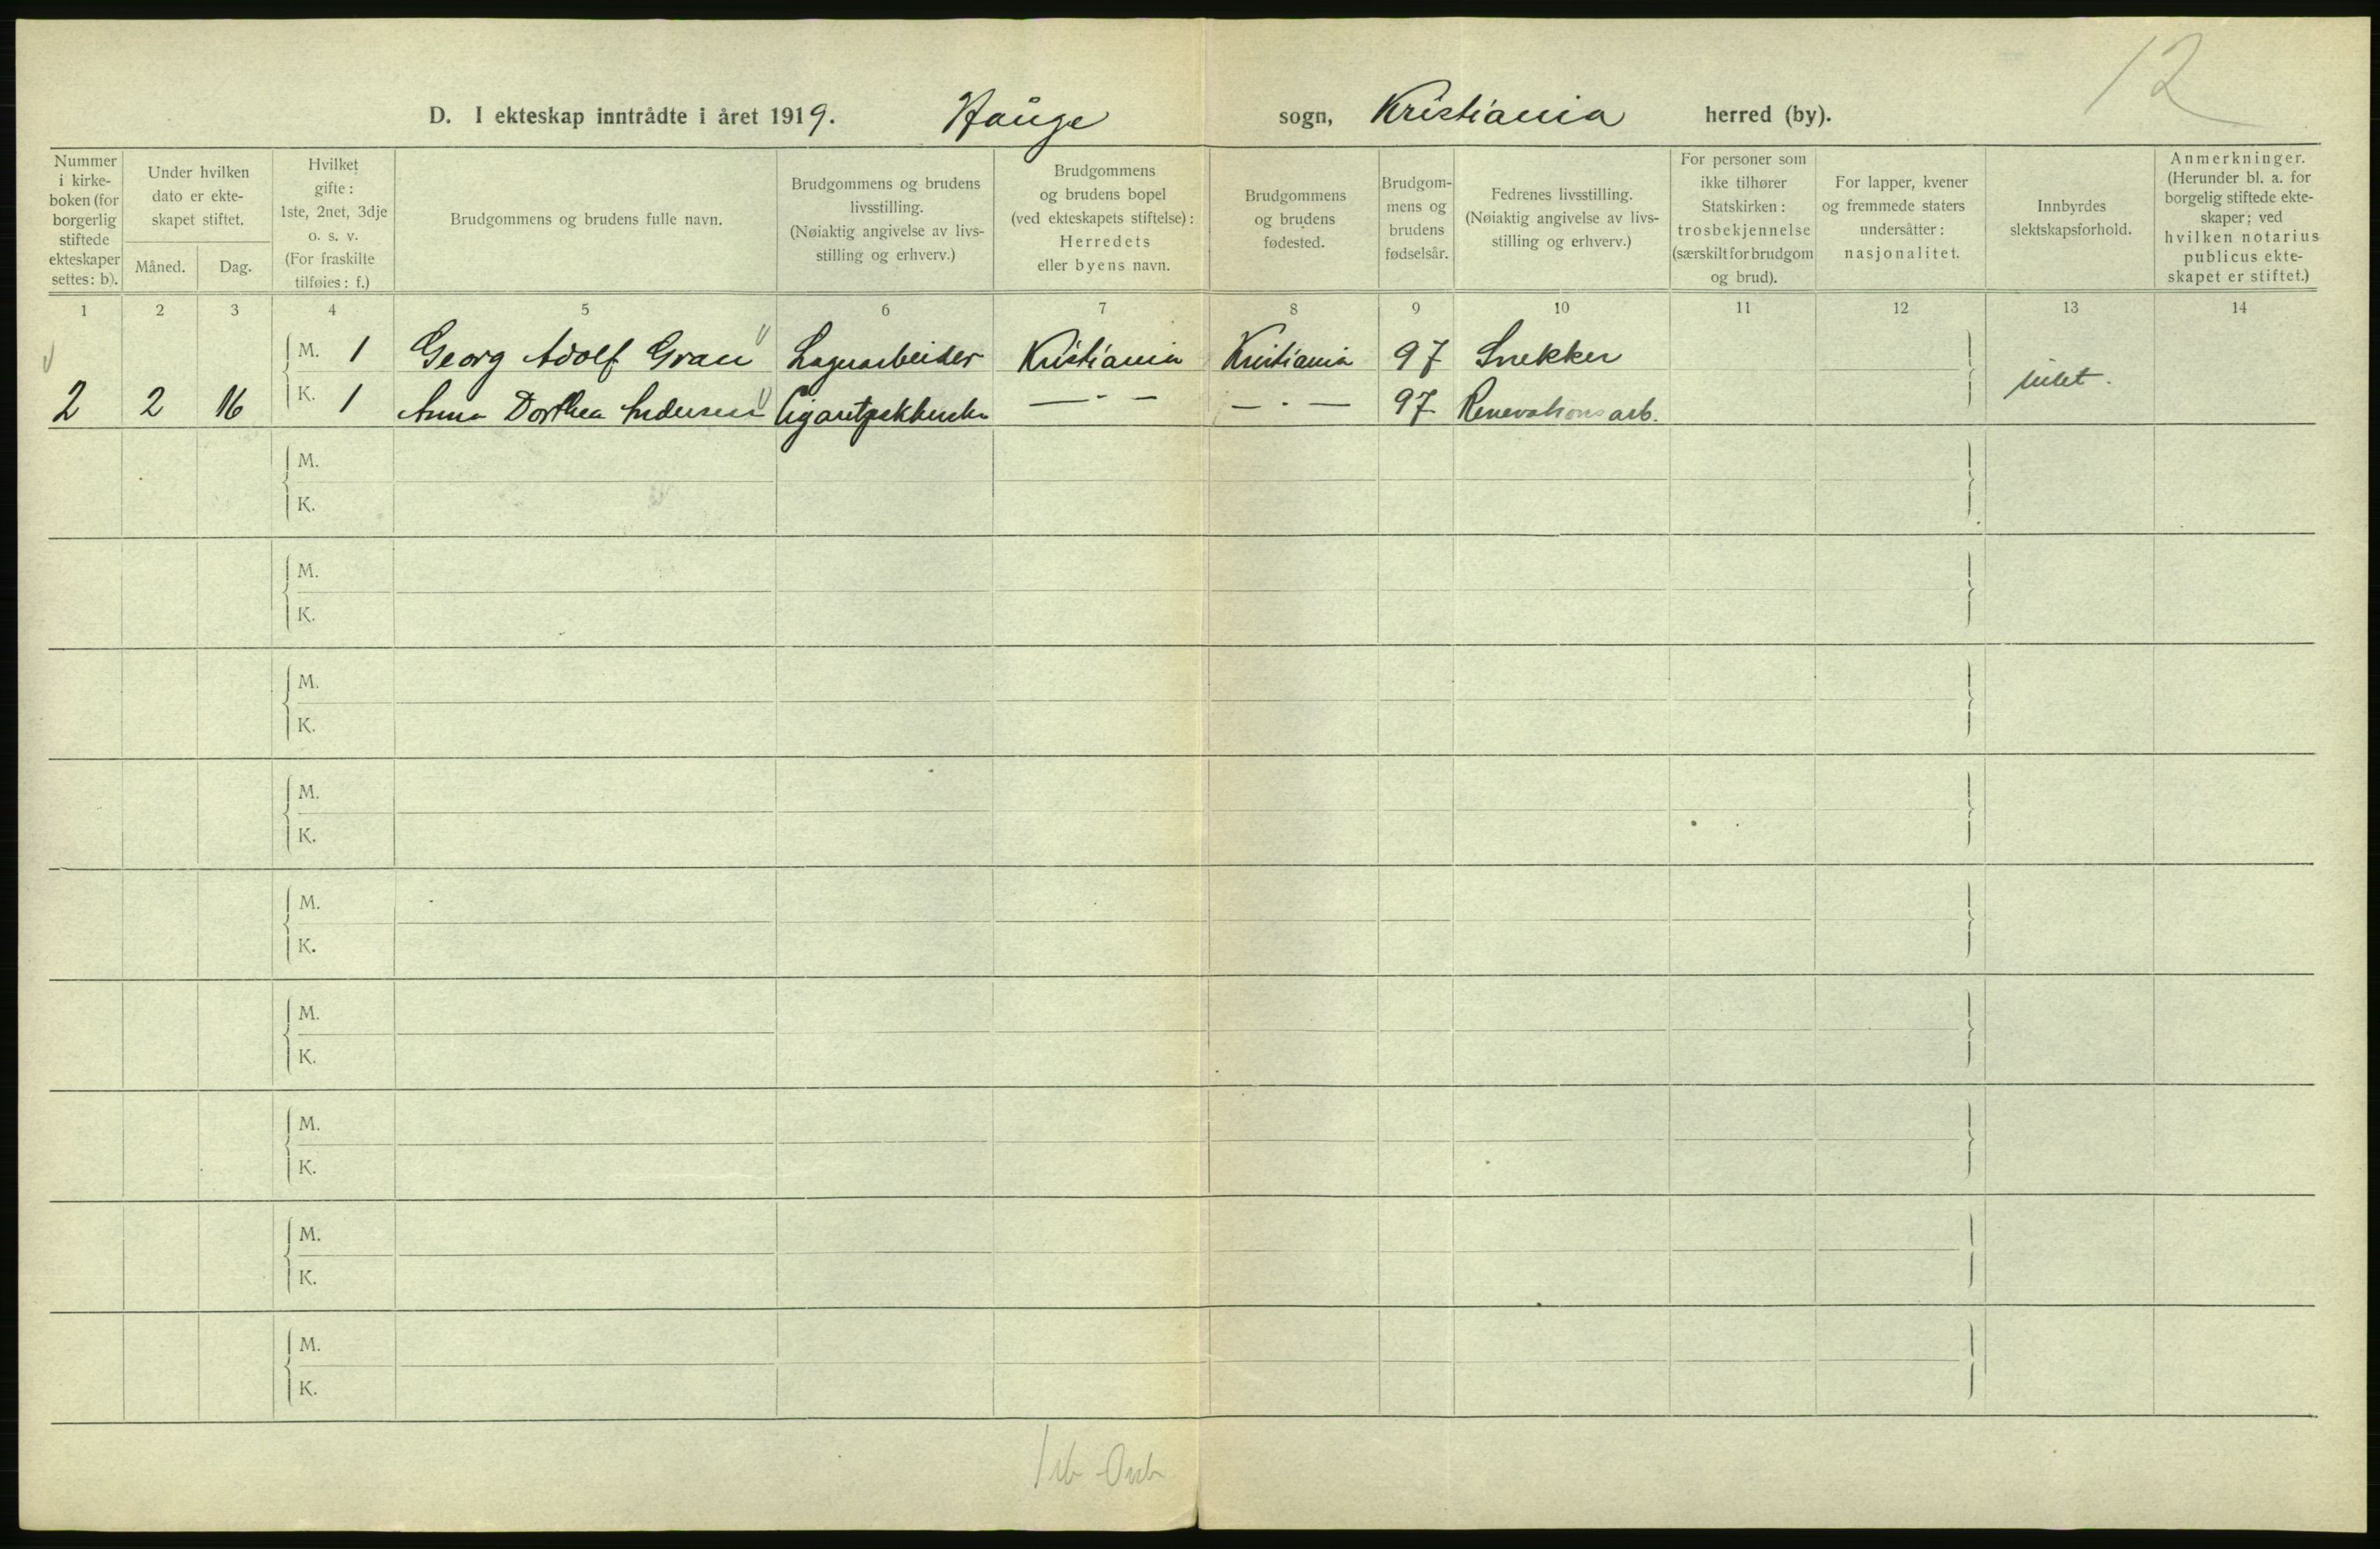 12
D. I ekteskap inntrådte i året 1919. Hauge sogn, Kristiania herred (by).
Nummer i kirke- boken (for borgerlig stiftede ekteskaper settes: b).
Under hvilken dato er ekte- skapet stiftet.
Måned. Dag.
Hvilket gifte: 1ste, 2net, 3dje o. s. v. (For fraskilte tilføies: f.)
Brudgommens og brudens fulle navn.
Brudgommens og brudens livsstilling. (Nøiaktig angivelse av livs- stilling og erhverv.)
Brudgommens og brudens bopel (ved ekteskapets stiftelse): Herredets eller byens navn.
Brudgommens og brudens fødested.
Brudgom- mens og brudens fødselsår.
Fedrenes livsstilling. (Nøiaktig angivelse av livs- stilling og erhverv.)
For personer som ikke tilhører Statskirken: trosbekjennelse (særskilt for brudgom og brud).
For lapper, kvener og fremmede staters undersåtter: nasjonalitet.
Innbyrdes slektskapsforhold.
Anmerkninger. (Herunder bl. a. for borgelig stiftede ekte- skaper; ved hvilken notarius publicus ekte- skapet er stiftet.)
1 2 3 4 5 6 7 8 9 10 11 12 13 14
M. 1 Georg Adolf Grau Lagerarbeider Kristiania Kristiania 97 Snekker
2 2 16 K. 1 Anna Dorthea Andersen — · — — · — 97 Renovationsarb. intet.
M.
K.
M.
K.
M.
K.
M.
K.
M.
K.
M.
K.
M.
K.
M.
K.
M.
K.